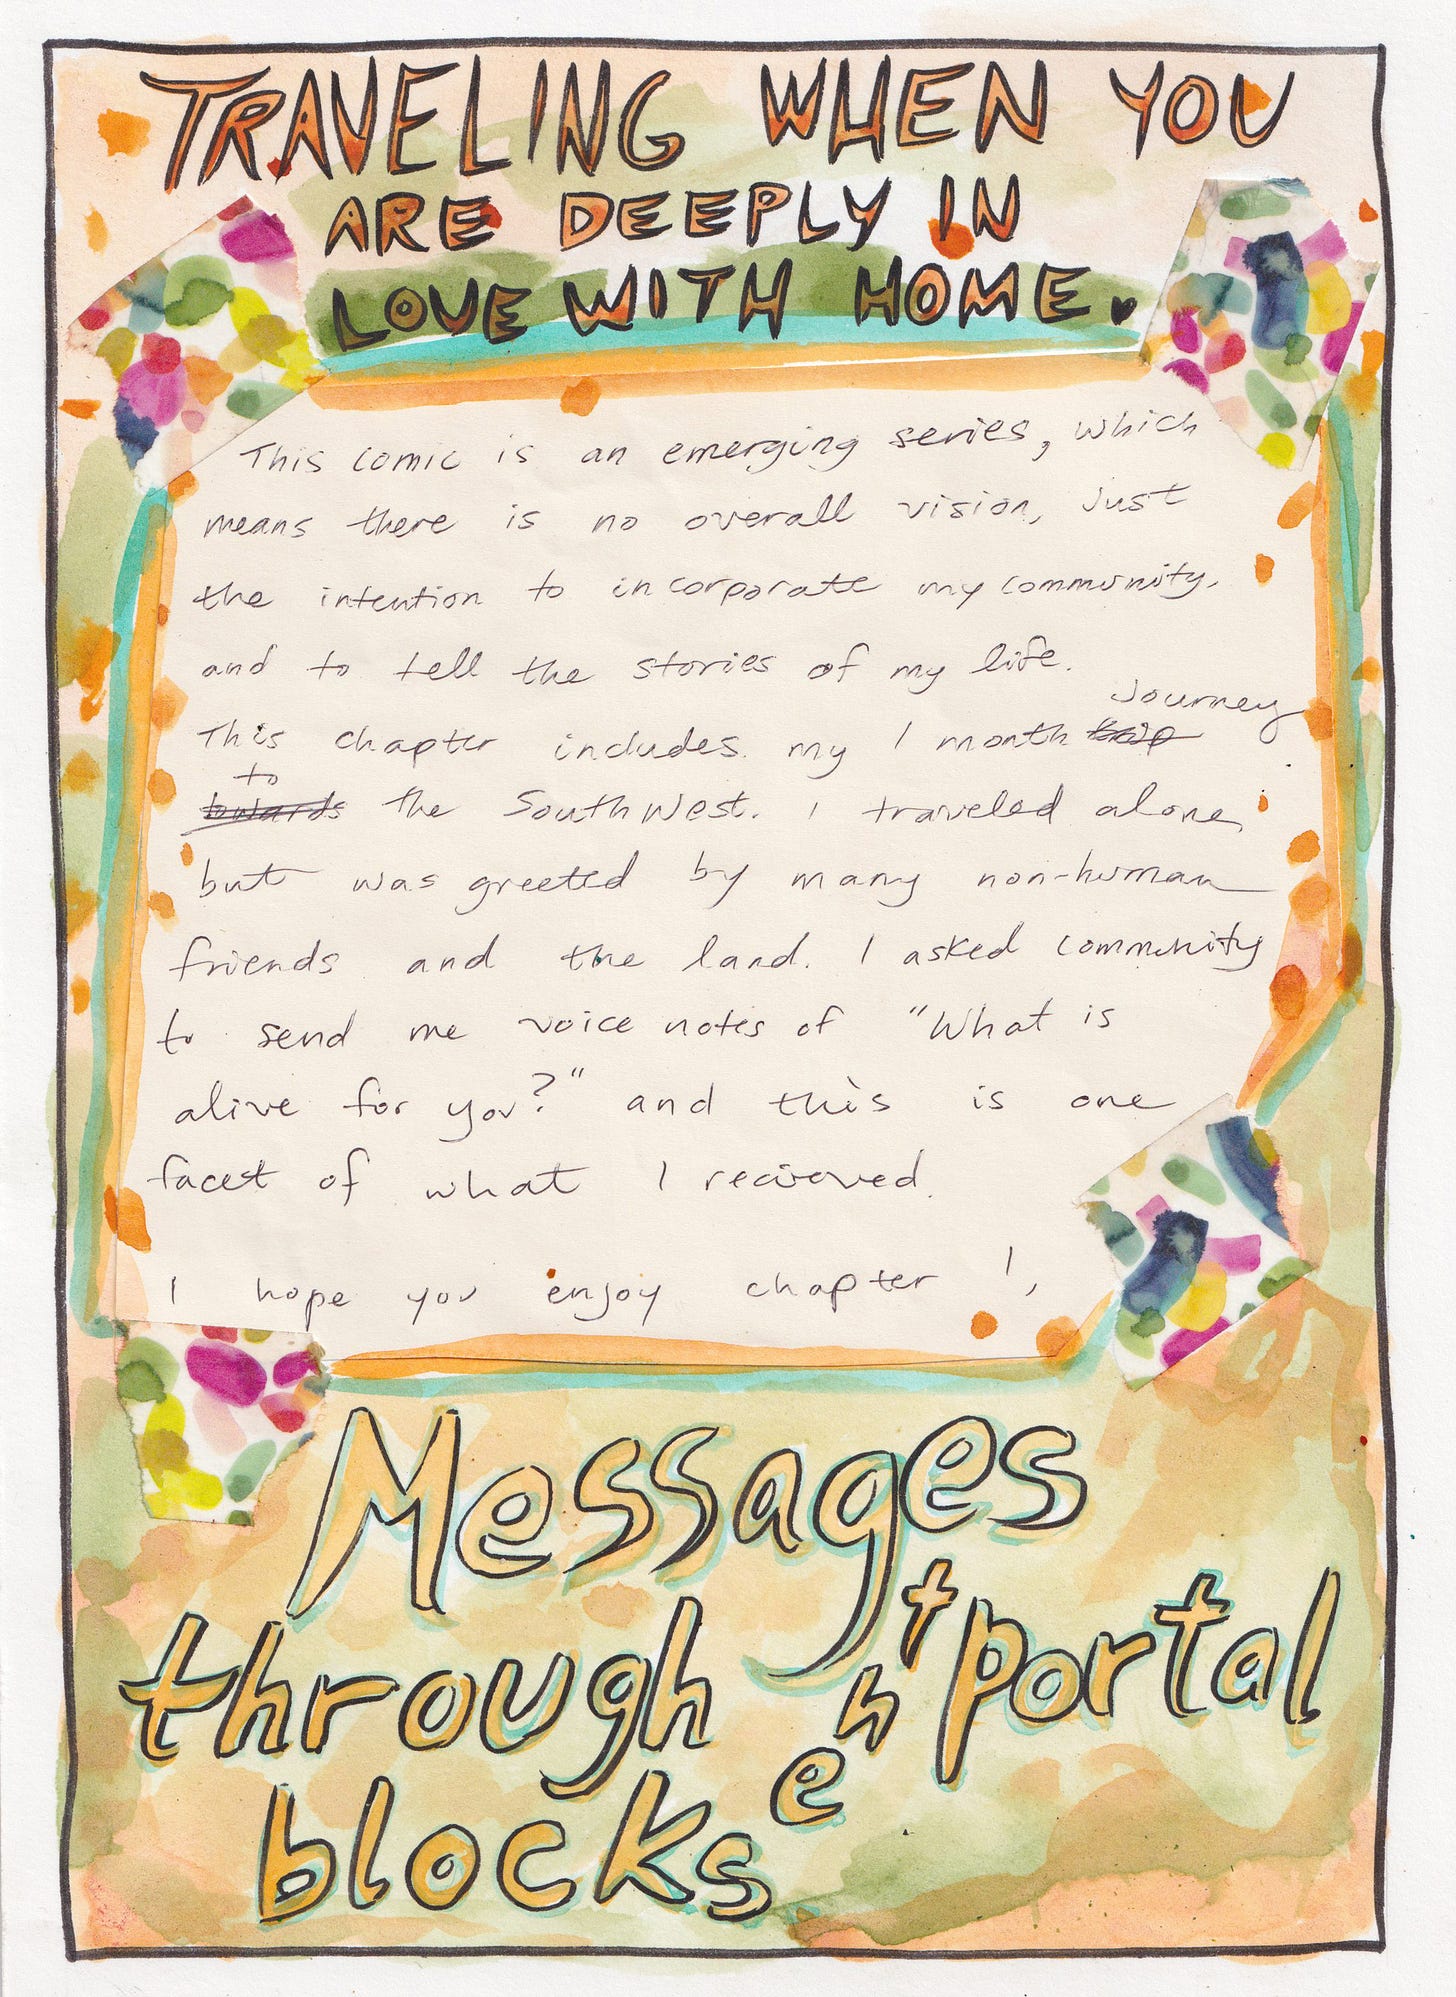 TRAVELING WHEN YOU
ARE DEEPLY IN
LOVE WITH HOME.
This comic is an emerging series, which
means there is no overall vision, just
the intention to incorporate my community,
and to tell the stories of my life.
This chapter includes my 1 month trip journey
towards to the SouthWest. I traveled alone,
but was greeted by many non-human
friends and the land. I asked community
to send me voice notes of "What is
alive for you?" and this is one
facet of what I recieved.
I hope you enjoy chapter 1,
Messages
through the portal
blocks